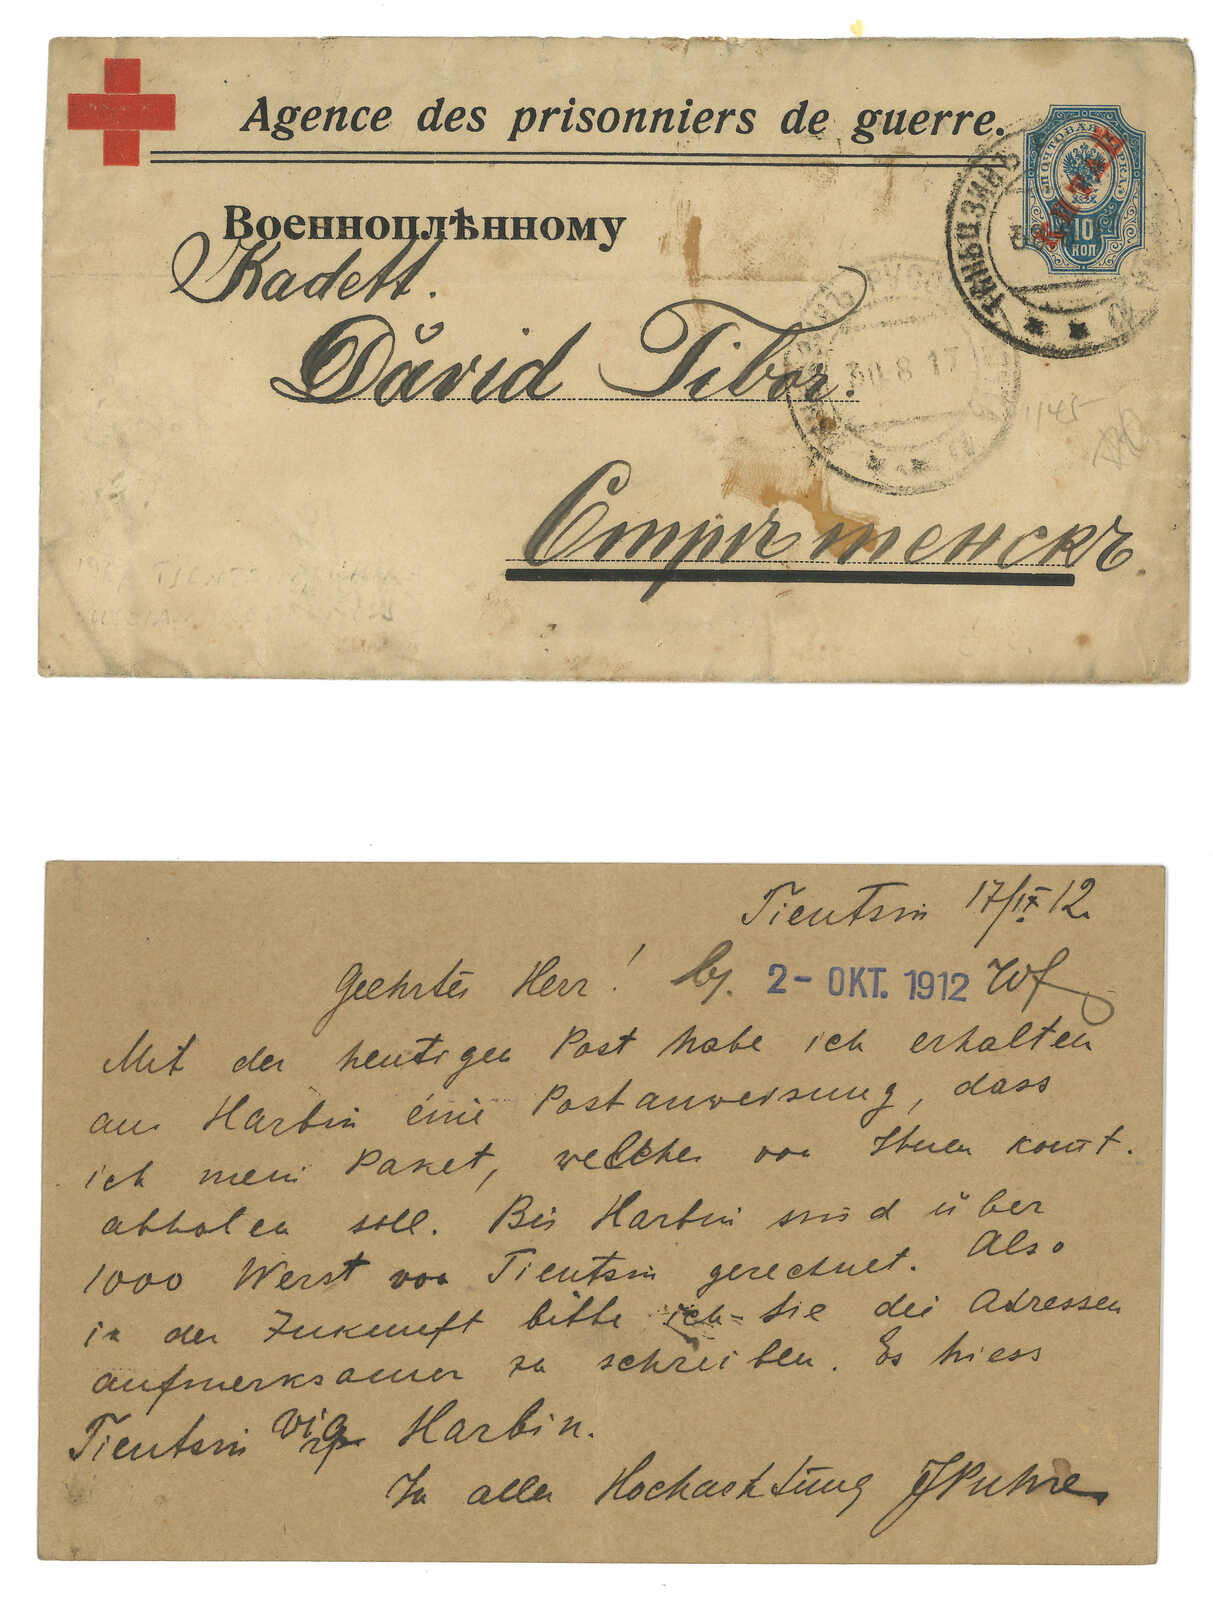 Agence des prisonniers de guerre.
Военноплѣнному
Kadett.
Dávid Tibor.
Стрѣтенскъ.
ПОЧТОВАЯ МАРКА
КИТАЙ
10
КОП
ТЯНЬЦЗИНЪ
30.8.17
1145-
Tientsin 17/IX 12.
Geehrtes Herr! 2- OKT. 1912
Mit der heutigen Post habe ich erhalten
aus Harbin eine Postanweisung, dass
ich mein Paket, welches von Ihnen komt.
abholen soll. Bis Harbin sind über
1000 Werst von Tientsin gerechnet. Also
in der Zukunft bitte ich Sie die Adressen
aufmerksamer zu schreiben. Es hiess
Tientsin via Harbin.
In aller Hochachtung